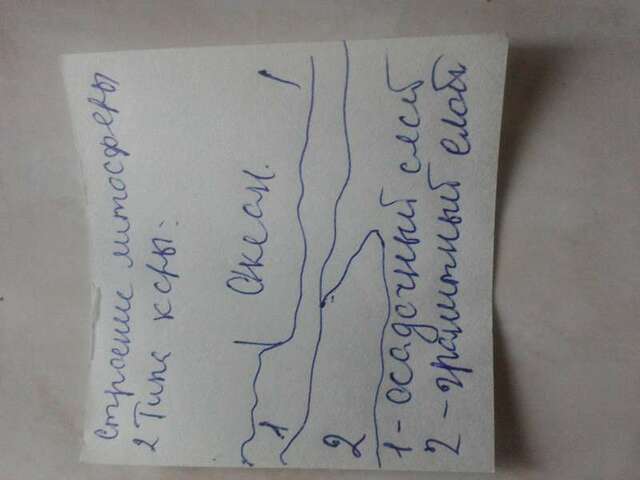 Строение литосферы
2 Типа коры:
Океан.
1
2
1 - осадочный слой
2 - гранитный слой